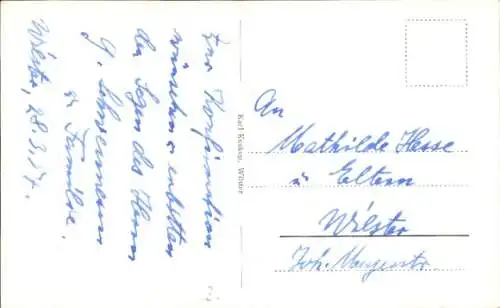 Zur Konfirmation
wünschen u. erbitten
den Segen des Herrn
G. Schwermann
u. Familie.
Wilster, 28.3.
Karl Kuskop, Wilster
An
Mathilde Hesse
u Eltern
Wilster
Joh. Meyerstr.